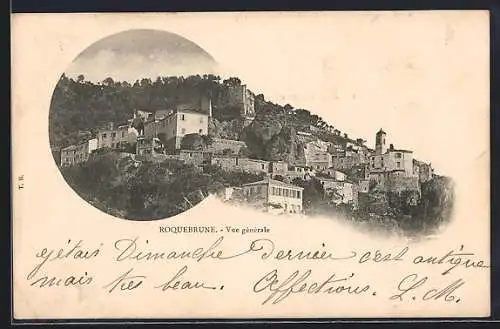 T. B.
ROQUEBRUNE. - Vue générale
j'étais Dimanche Dernier c'est antique
mais très beau. Affections. L. M.